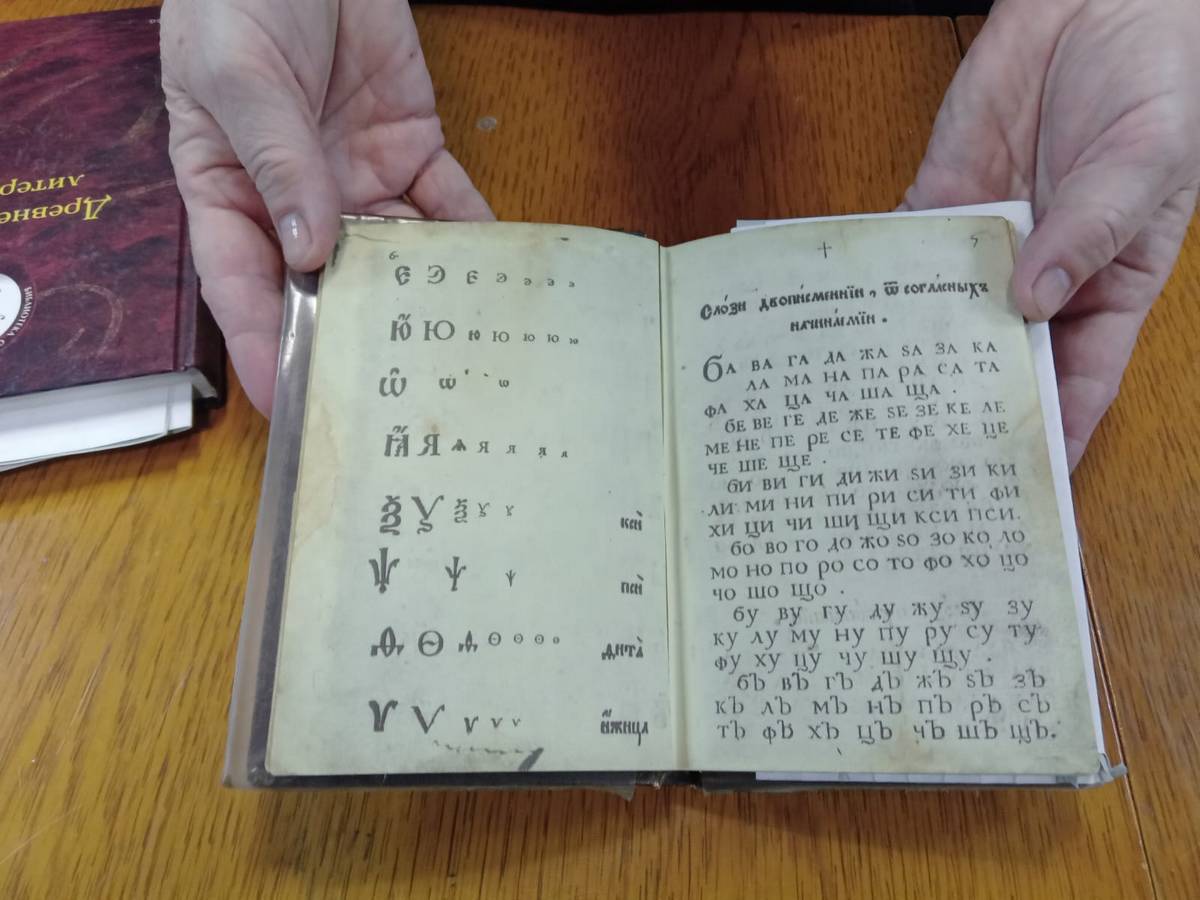 Древне
литер
БИБЛИОТЕКА
Є Э Є Э Э Э Э
Ю҆́ Ю ю Ю ю ю ю
Ѡ҆̑ ѡ ѡ
Ꙗ҆́ Я ѧ Я я я ѧ
Ѯ Ѯ ѯ ѯ ѯ ксѝ
Ѱ Ѱ ѱ псѝ
Ѳ Ѳ ѳ ѳ ѳ ѳ ѳ ѳита̀
Ѵ Ѵ ѵ ѵ ѵ и҆́жица
Сло́зи двописменнїи, ѿ согла́сныхъ
начина́емїи.
ба ва га да жа ѕа за ка
ла ма на па ра са та
фа ха ца ча ша ща .
бе ве ге де же ѕе зе ке ле
ме не пе ре се те фе хе це
че ше ще .
би ви ги ди жи ѕи зи ки
ли ми ни пи ри си ти фи
хи ци чи ши щи кси пси.
бо во го до жо ѕо зо ко ло
мо но по ро со то фо хо цо
чо шо що .
бу ву гу ду жу ѕу зу
ку лу му ну пу ру су ту
фу ху цу чу шу щу .
бъ въ гъ дъ жъ ѕъ зъ
къ лъ мъ нъ пъ ръ съ
тъ фъ хъ цъ чъ шъ щъ.